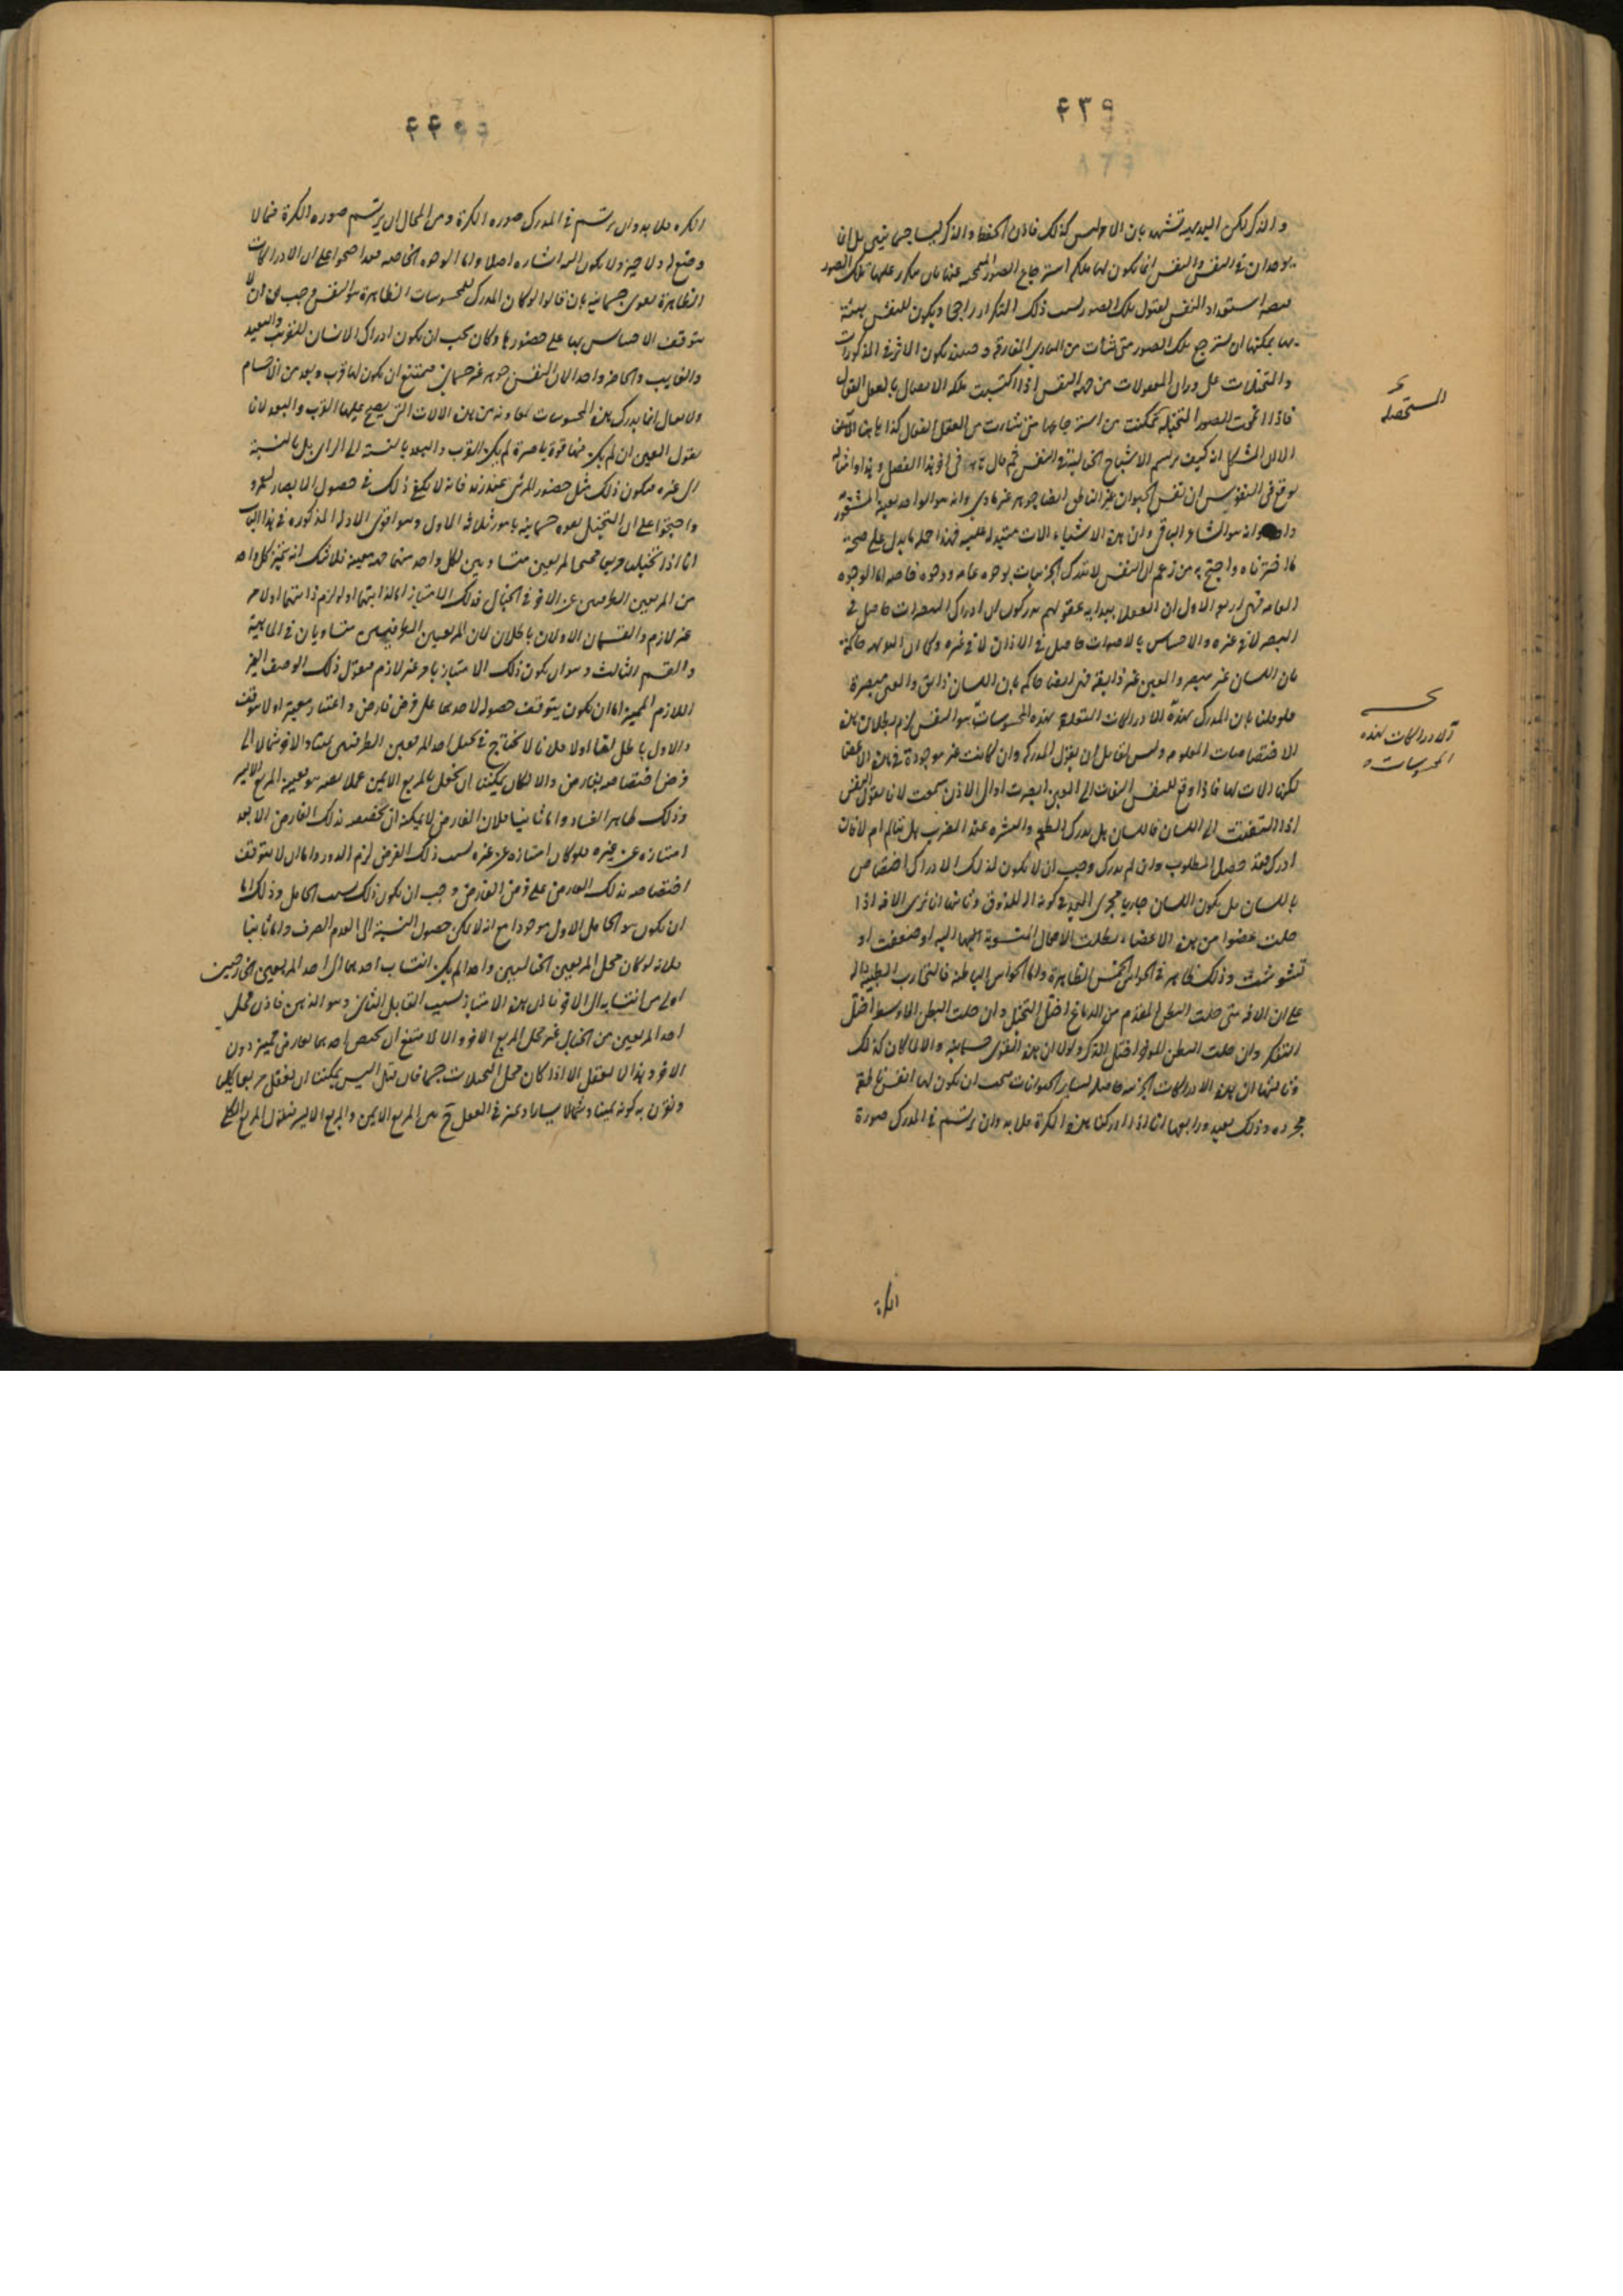 ٤٣٩
والذكر لكن البديهة تشهد بان الامر ليس كذلك فاذن الحفظ والذكر ليسا جسمانيين بل انما
يوجدان في النفس والنفس انما يكون لها ملكة استرجاع الصور المنمحية عنها بان يتكرر عليها تلك الصور
فيصير استعداد النفس لقبول تلك الصور بسبب ذلك التكرار راجحا ويكون للنفس هيئة
بها يمكنها ان تسترجع تلك الصور متى شاءت من المبادي المفارقة وحينئذ يكون الامر في المذكورات
والمتخيلات على وزان المعقولات من جهة النفس اذا اكتسبت ملكة الاتصال بالعقل الفعال
فاذا انمحت الصور المتخيلة تمكنت من استرجاعها متى شاءت من العقل الفعال كذا هاهنا الا
ان المشكل انه كيف يرتسم الاشباح الخيالية في النفس ثم قال في اخر هذا الفصل وهذا وامثاله
يوقع في النفوس ان نفس الحيوان غير الناطق ايضا جوهر غير مادي وانه هو الواحد بعينه المشعور
وانه هو الشاعر الباقي وان هذه الاشياء الات متبدلة عليه فهذا جملة ما يدل على صحة
ما اخترناه واحتج به من زعم ان النفس لا تدرك الجزئيات بوجوه عامة ووجوه خاصة اما الوجوه
العامة فهي اربعة الاول ان العقلاء ببداية عقولهم يدركون ان ادراك المبصرات حاصل في
البصر لا في غيره والاحساس بالاصوات حاصل في الاذان لا في غيره وكما ان البديهة حاكمة
بان اللسان غير مبصر والعين غير ذائقة فهي ايضا حاكمة بان اللسان ذائق والعين مبصرة
فلو قلنا بان المدرك بهذه الادراكات المتعلقة بهذه المحسوسات هو النفس لزم بطلان هذه
الاختصاصات المعلومة وليس لقائل ان يقول المدرك وان كانت غير موجودة في هذه الاعضا
لكنها الات لها فاذا وقع للنفس التفات الى العين ابصرت او الى الاذن سمعت لانا نقول النفس
اذا التفتت الى اللسان فاللسان هل يدرك الطعم والبشرة عند الضرب هل يتالم ام لا فان
ادرك فقد حصل المطلوب وان لم يدرك وجب ان لا يكون لذلك الادراك اختصاص
باللسان بل يكون اللسان جاريا مجرى اليد في كونه الة للذوق وثانيها انا نرى الافة اذا
حلت عضوا من هذه الاعضاء بطلت الافعال المنسوبة اليها اليه او ضعفت او
تشوشت وذلك ظاهر في الحواس الخمس الظاهرة واما الحواس الباطنة فالتجارب الطبية دالة
على ان الافة متى حلت البطن المقدم من الدماغ اختل التخيل وان حلت البطن الاوسط اختل
التفكر وان حلت البطن المؤخر اختل الذكر ولولا ان هذه القوى جسمانية والا لما كان كذلك
وثالثها ان هذه الادراكات الجزئية حاصلة لسائر الحيوانات فيجب ان يكون لها نفس ناطقة
مجردة وذلك بعيد ورابعها انا اذا ادركنا هذه الكرة فلا بد وان يرتسم في المدرك صورة
المستحصلة
الادراكات لهذه
المحسوسات
الكرة
٤٤٠
الكرة فلا بد وان يرتسم في المدرك صورة الكرة ومن المحال ان يرتسم صورة الكرة فيما لا
وضع له ولا حيز ولا يكون اليه اشارة اصلا واما الوجوه الخاصة فقد احتجوا على ان الادراكات
الظاهرة لقوى جسمانية بان قالوا لو كان المدرك للمحسوسات الظاهرة هو النفس وجب ان لا
يتوقف الاحساس بها على حضورها وكان يجب ان يكون ادراك الانسان للقريب والبعيد
والغايب والحاضر واحدا لان النفس جوهر غير جسماني فيمتنع ان يكون لها قرب وبعد من الاجسام
ولا يقال انما يدرك هذه المحسوسات بمعاونة من هذه الالات التي يصح عليها القرب والبعد لانا
نقول العين ان لم يكن فيها قوة باصرة لم يكن القرب والبعد بالنسبة الى الرائي بل بالنسبة
الى غيره فيكون ذلك مثل حضور المرئي عند زيد فانه لا يكفي ذلك في حصول الابصار لعمرو
واحتجوا على ان التخيل لقوة جسمانية بامور ثلاثة الاول وهو اقوى الادلة المذكورة في هذا الباب
انا اذا تخيلنا مربعا مجنحا بمربعين متساويين لكل واحد منهما جهة معينة فلا شك انه يتميز كل واحد
من المربعين الطرفين عن الاخر في الخيال فذلك الامتياز اما لذاتيهما او للوازم ذاتيهما او لامر
غير لازم والقسمان الاولان باطلان لان المربعين الطرفيين متساويان في الماهية
والقسم الثالث وهو ان يكون ذلك الامتياز بامر غير لازم فنقول ذلك الوصف الغير
اللازم المميز اما ان يكون يتوقف حصوله لاحدهما على فرض فارض واعتبار معتبر او لا يتوقف
والاول باطل لانا اولا فلانا لا نحتاج في تخيل احد المربعين الطرفين يمينا والاخر شمالا الى
فرض اختصاصه بعارض والا لكان يمكننا ان نجعل بالمربع الايمن عملا يصير هو بعينه المربع الايسر
وذلك ظاهر الفساد واما ثانيا فلان الفارض لا يمكنه ان يخصصه بذلك العارض الا بعد
امتيازه عن غيره فلو كان امتيازه عن غيره بسبب ذلك الفرض لزم الدور واما ان لا يتوقف
اختصاصه بذلك العارض على فرض الفارض وجب ان يكون ذلك بسبب الحامل وذلك اما
ان يكون هو الحامل الاول موجودا مع انه لا يمكن حصول النسبة الى العدم الصرف واما ثانيا
فلانه لو كان محل المربعين الخياليين واحدا لم يكن انتساب احدهما الى احد المربعين الخارجين
اولى من انتسابه الى الاخر فاذن هذا الامتياز بسبب القابل الثاني وهو الذهن فاذن محل
احد المربعين من الخيال غير محل المربع الاخر والا لامتنع ان يختص احدهما بعارض مميز دون
الاخر وهذا لا يعقل الا اذا كان محل التخيلات جسما فان قيل اليس يمكننا ان نعقل مربعا كليا
ونقرن به كونه يمينا وشمالا يسارا ونميز في العقل ح بين المربع الايمن والمربع الايسر فنقول المربع الكلي